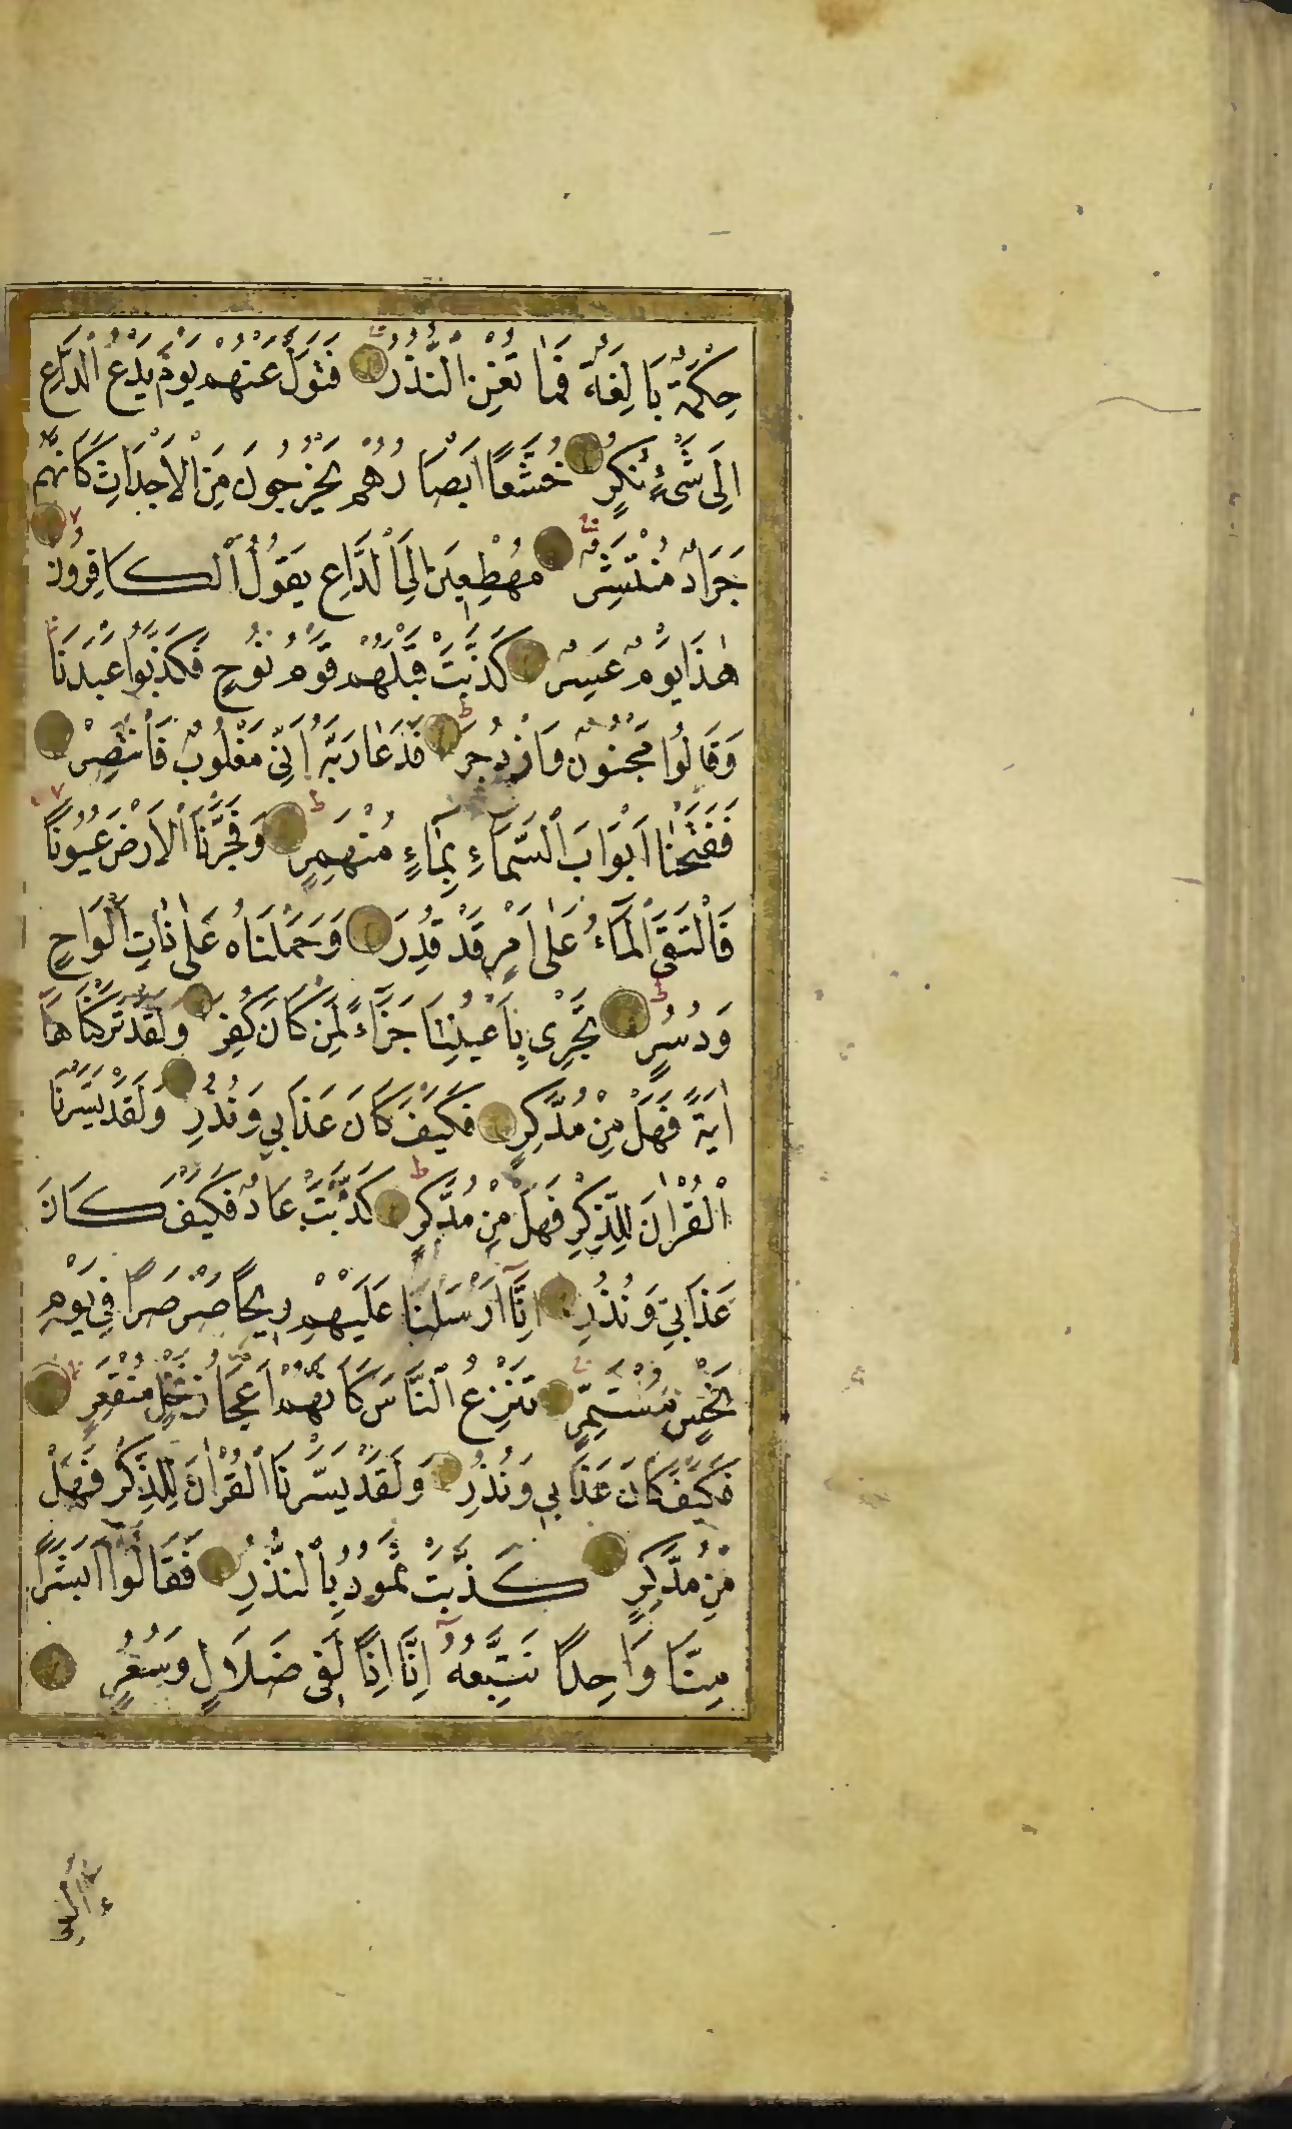 حِكْمَةٌ بَالِغَةٌ فَمَا تُغْنِ النُّذُرُ فَتَوَلَّ عَنْهُمْ يَوْمَ يَدْعُ الدَّاعِ
اِلَى شَىْءٍ نُكُرٍ خُشَّعًا اَبْصَارُهُمْ يَخْرُجُونَ مِنَ الْاَجْدَاثِ كَاَنَّهُمْ
جَرَادٌ مُنْتَشِرٌ مُهْطِعِينَ اِلَى الدَّاعِ يَقُولُ الْكَافِرُونَ
هٰذَا يَوْمٌ عَسِرٌ كَذَّبَتْ قَبْلَهُمْ قَوْمُ نُوحٍ فَكَذَّبُوا عَبْدَنَا
وَقَالُوا مَجْنُونٌ وَازْدُجِرَ فَدَعَا رَبَّهُ اَنِّى مَغْلُوبٌ فَانْتَصِرْ
فَفَتَحْنَا اَبْوَابَ السَّمَاءِ بِمَاءٍ مُنْهَمِرٍ وَفَجَّرْنَا الْاَرْضَ عُيُونًا
فَالْتَقَى الْمَاءُ عَلٰى اَمْرٍ قَدْ قُدِرَ وَحَمَلْنَاهُ عَلٰى ذَاتِ اَلْوَاحٍ
وَدُسُرٍ تَجْرِى بِاَعْيُنِنَا جَزَاءً لِمَنْ كَانَ كُفِرَ وَلَقَدْ تَرَكْنَاهَا
اٰيَةً فَهَلْ مِنْ مُدَّكِرٍ فَكَيْفَ كَانَ عَذَابِى وَنُذُرِ وَلَقَدْ يَسَّرْنَا
الْقُرْاٰنَ لِلذِّكْرِ فَهَلْ مِنْ مُدَّكِرٍ كَذَّبَتْ عَادٌ فَكَيْفَ كَانَ
عَذَابِى وَنُذُرِ اِنَّا اَرْسَلْنَا عَلَيْهِمْ رِيحًا صَرْصَرًا فِى يَوْمِ
نَحْسٍ مُسْتَمِرٍّ تَنْزِعُ النَّاسَ كَاَنَّهُمْ اَعْجَازُ نَخْلٍ مُنْقَعِرٍ
فَكَيْفَ كَانَ عَذَابِى وَنُذُرِ وَلَقَدْ يَسَّرْنَا الْقُرْاٰنَ لِلذِّكْرِ فَهَلْ
مِنْ مُدَّكِرٍ كَذَّبَتْ ثَمُودُ بِالنُّذُرِ فَقَالُوا اَبَشَرًا
مِنَّا وَاحِدًا نَتَّبِعُهُ اِنَّا اِذًا لَفِى ضَلَالٍ وَسُعُرٍ